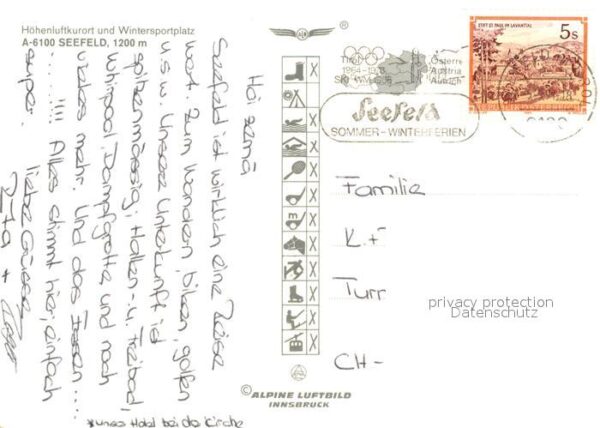 Höhenluftkurort und Wintersportplatz
A-6100 SEEFELD, 1200 m
Hoi zämä
Seefeld ist wirklich eine Reise
wert zum Wandern, biken, golfen
u.s.w. Unsere Unterkunft ist
spitzenmässig; Hallen- u. Freibad,
Whirlpool, Dampfgrotte und noch
vieles mehr. Und das Essen.....
.....!!!! Alles stimmt hier, einfach
super.
liebe Grüsse
+
*unser Hotel bei der Kirche
STIFT ST. PAUL IM LAVANTTAL
5s
Tirol
1964-1976
Österre
Austria
Autrich
Seefeld
SOMMER-WINTERFERIEN
Familie
K.+F
Turr
CH-
privacy protection
Datenschutz
© ALPINE LUFTBILD
INNSBRUCK